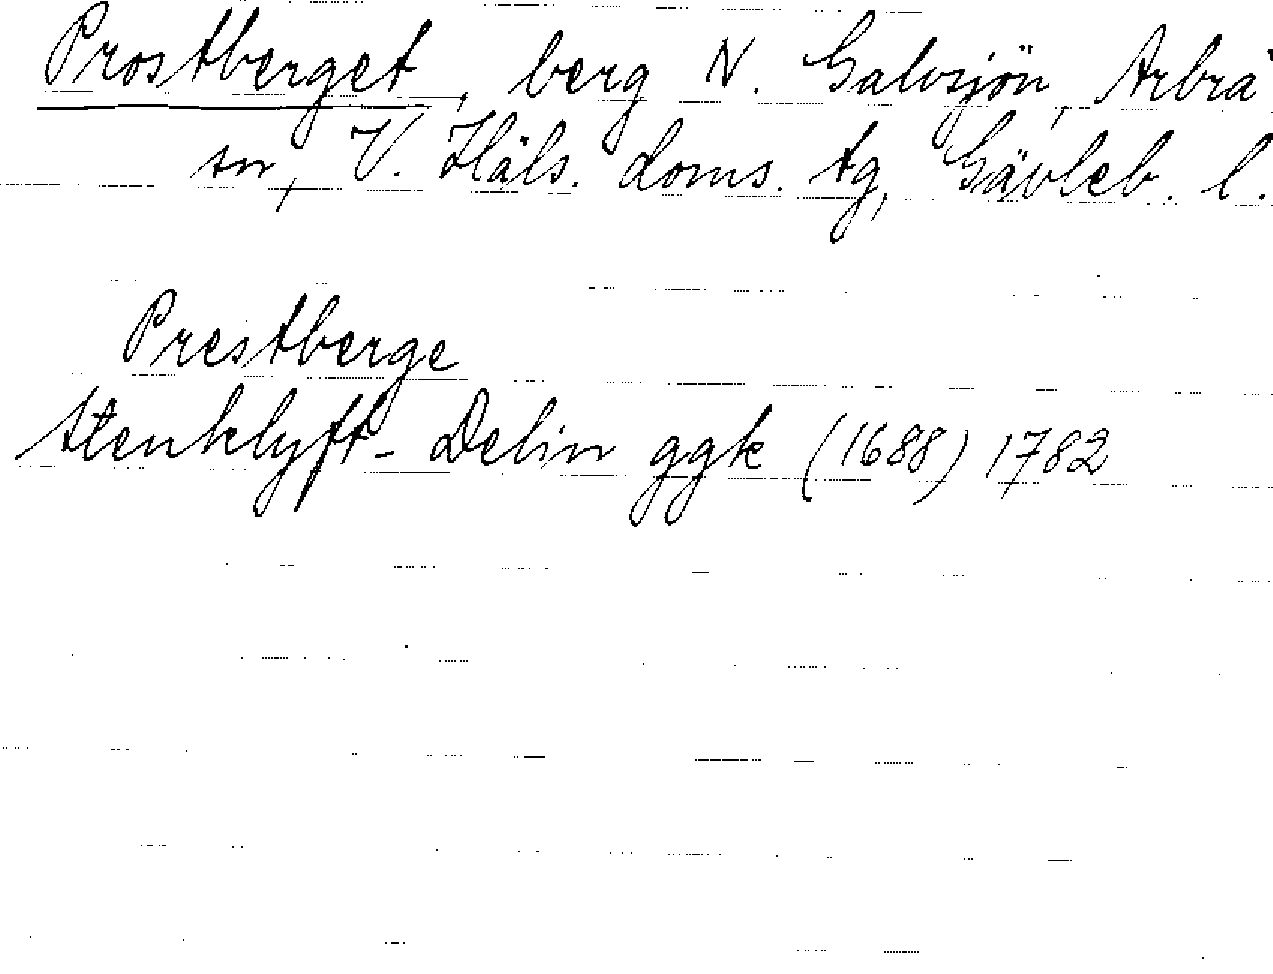 Prostberget, berg N. Galvsjön, Arbrå
sn, V. Häls. doms. tg, Gävleb. l.
Prestberge
stenklyft- Delin ggk (1688) 1782